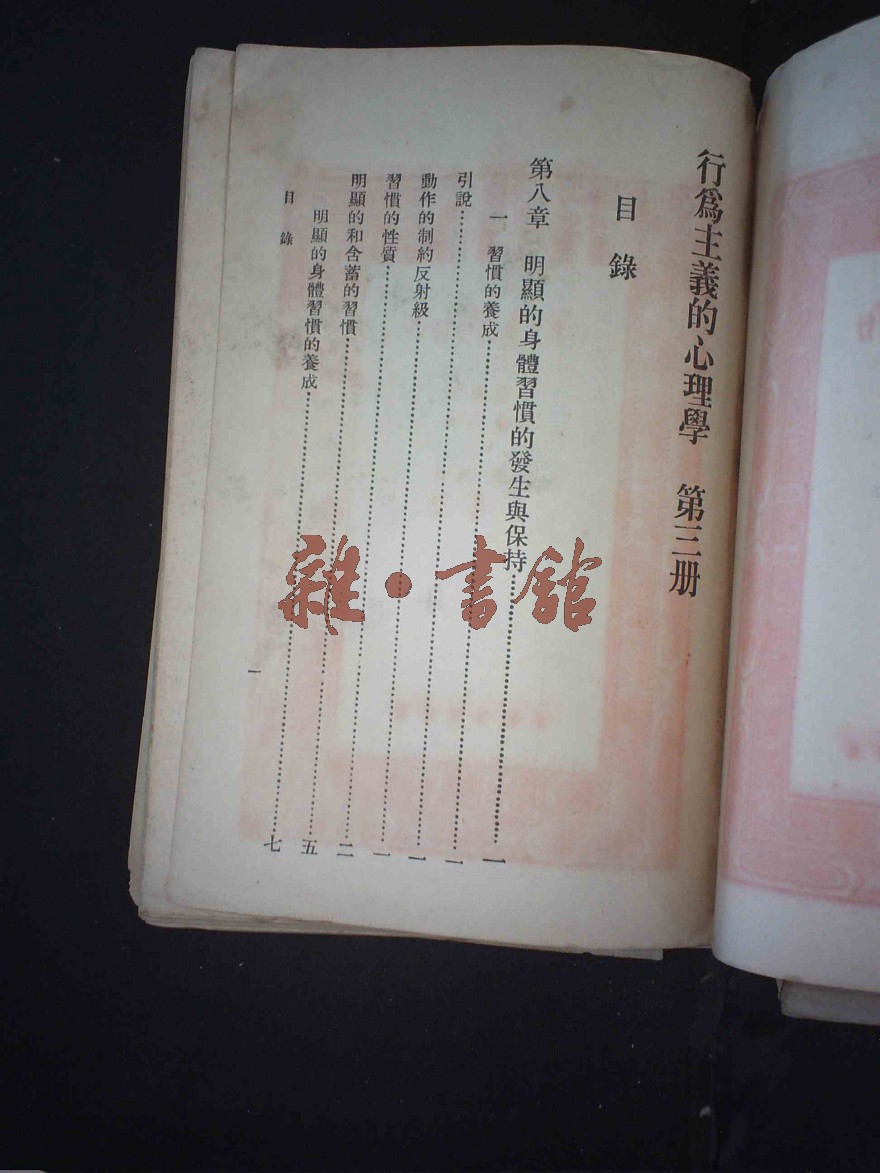 行為主義的心理學　第三册
目錄
第八章　明顯的身體習慣的發生與保持……一
一　習慣的養成……一
引說……一
動作的制約反射級……一
習慣的性質……二
明顯的和含蓄的習慣……五
明顯的身體習慣的養成……七
目錄　一
雜·書館